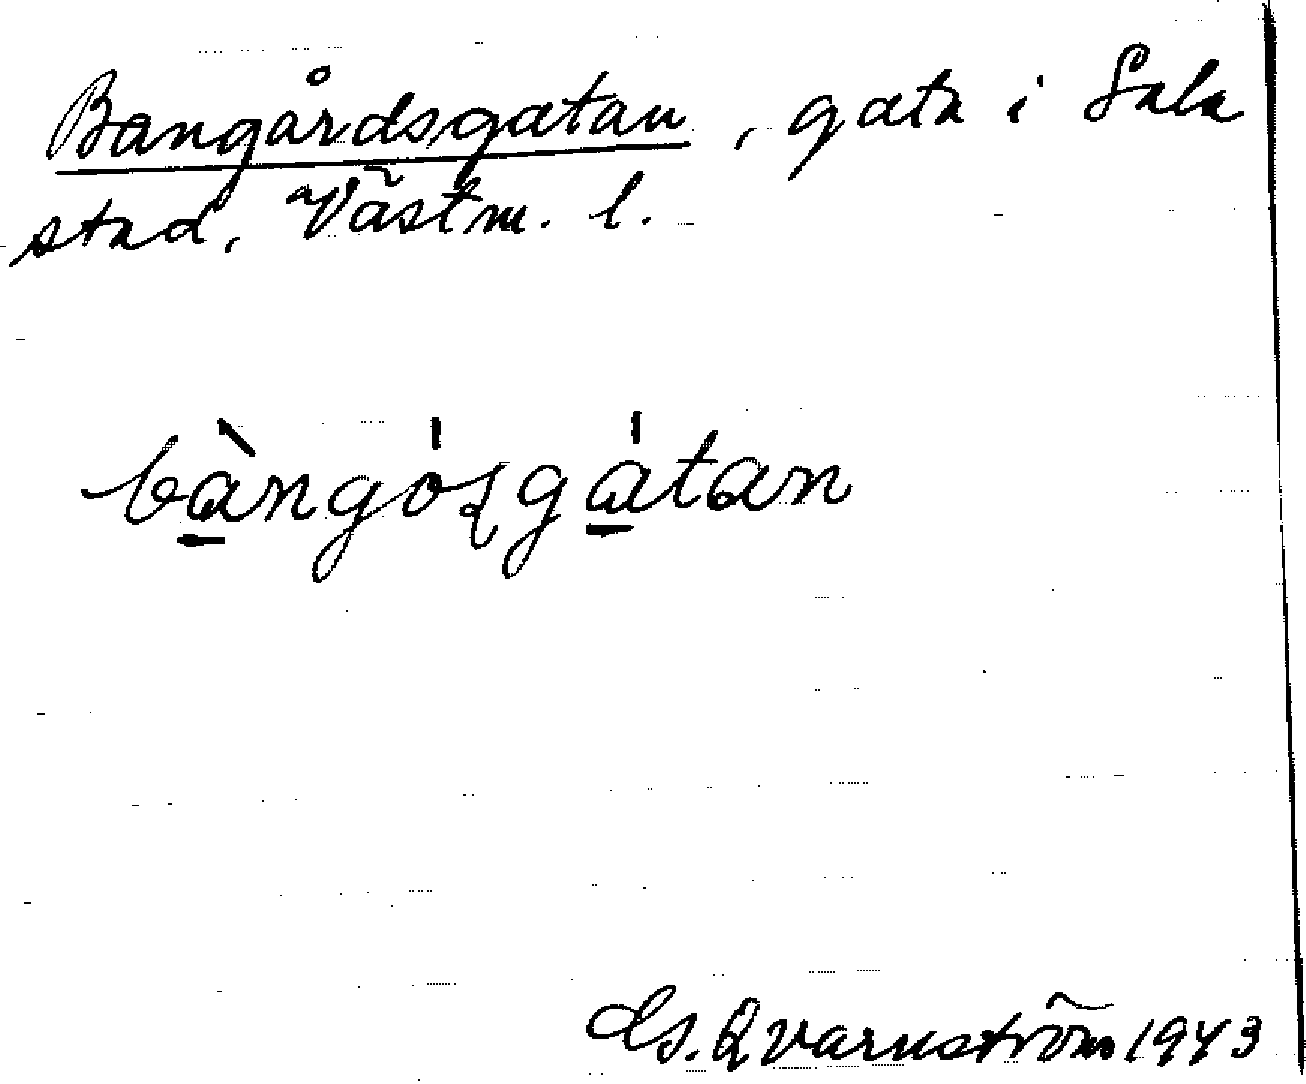 Bangårdsgatan, gata i Sala
stad, Västm. l.
bàngó̀ʂgátan
Ls. Qvarnström 1943